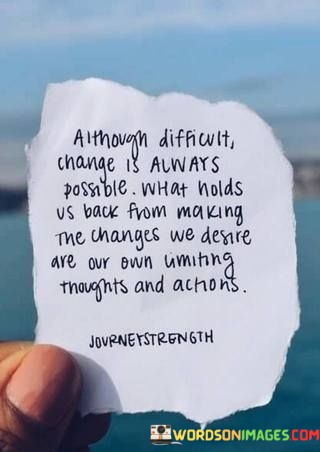 Although difficult,
change is ALWAYS
possible. What holds
us back from making
The changes we desire
are our own limiting
thoughts and actions.
JOURNEYSTRENGTH
WORDSONIMAGES.COM